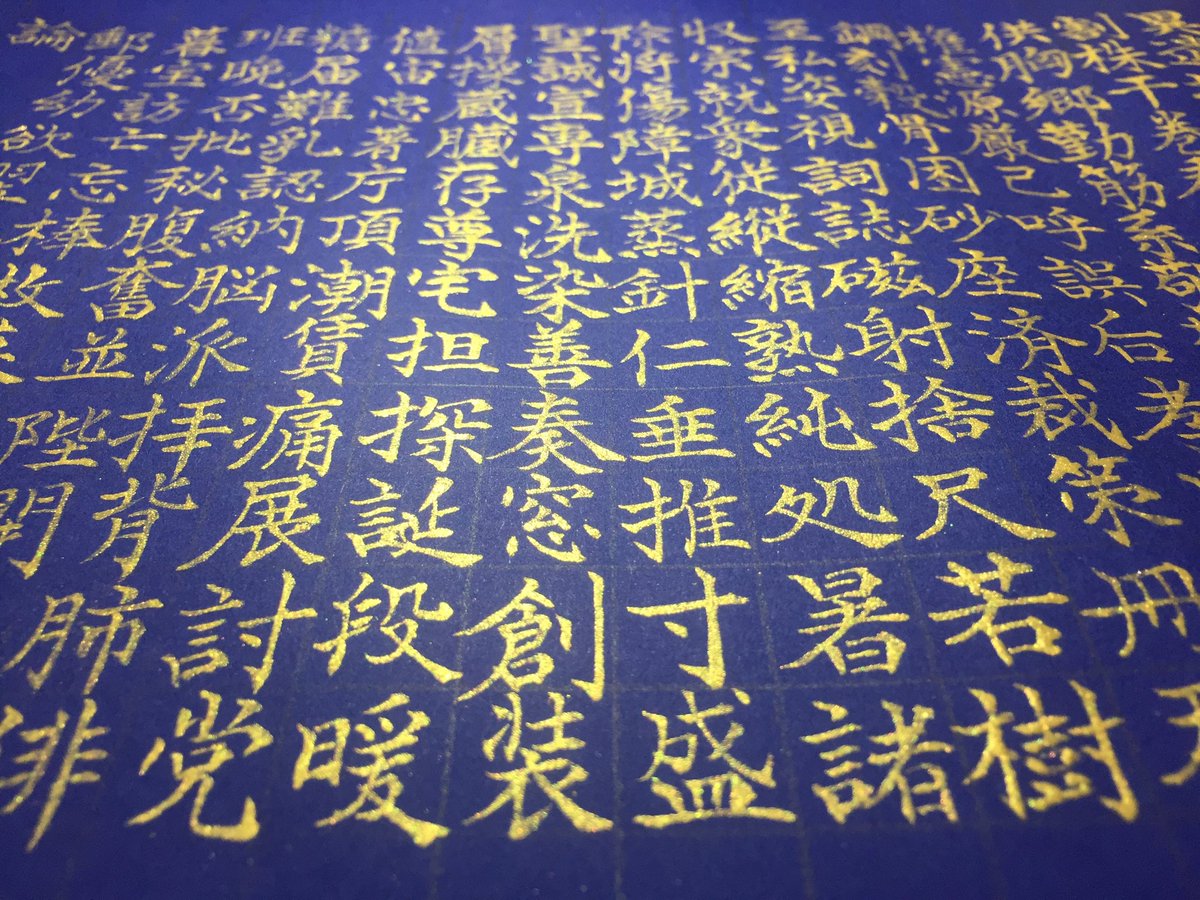 異遺
割株干巻看
供胸郷勤筋系敬
権憲源厳己呼誤后孝
鋼刻穀骨困砂座済裁策冊
至私姿視詞誌磁射捨尺若樹
収宗就衆従縦縮熟純処暑諸
除将傷障城蒸針仁垂推寸盛
聖誠宣専泉洗染善奏窓創装
層操蔵臓存尊宅担探誕段暖
値宙忠著庁頂潮賃痛展討党
糖届難乳認納脳派拝背肺俳
班晩否批秘腹奮並陛閉
暮宝訪亡忘棒枚
郵優幼欲翌
論